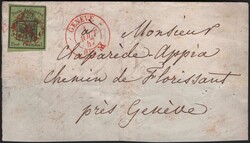 GENÈVE
Monsieur
Claparède-Appia
Chemin de Florissant
près Genève